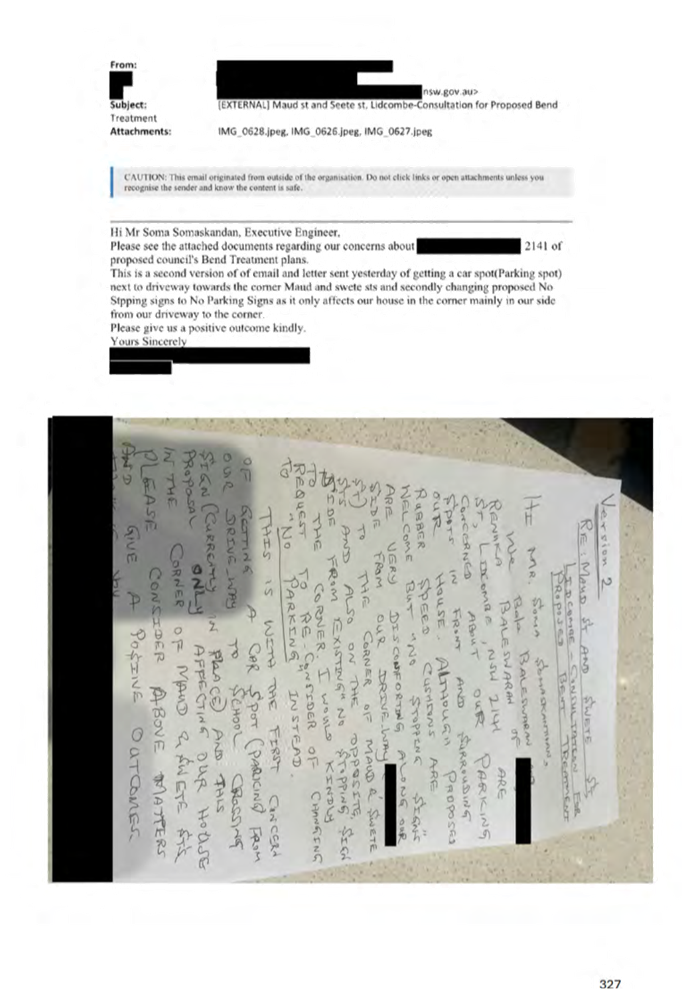 From:
nsw.gov.au>
Subject: [EXTERNAL] Maud st and Seete st, Lidcombe-Consultation for Proposed Bend
Treatment
Attachments: IMG_0628.jpeg, IMG_0626.jpeg, IMG_0627.jpeg
CAUTION: This email originated from outside of the organisation. Do not click links or open attachments unless you
recognise the sender and know the content is safe.
Hi Mr Soma Somaskandan, Executive Engineer,
Please see the attached documents regarding our concerns about 2141 of
proposed council's Bend Treatment plans.
This is a second version of of email and letter sent yesterday of getting a car spot(Parking spot)
next to driveway towards the corner Maud and swete sts and secondly changing proposed No
Stpping signs to No Parking Signs as it only affects our house in the corner mainly in our side
from our driveway to the corner.
Please give us a positive outcome kindly.
Yours Sincerely
Version 2
RE: MAUD ST AND SWETE ST,
LIDCOMBE - CONSULTATION FOR
PROPOSED TREATMENT
HI MR. SOMA
WE BALA BALESWARAN
RENUKA BALESWARAN OF
ST, LIDCOMBE, NSW 2141 ARE
CONCERNED ABOUT OUR PARKING
SPOTS IN FRONT AND SURROUNDING
OUR HOUSE. ALTHOUGH PROPOSED
RUBBER SPEED CUSHIONS ARE
WELCOME BUT "NO STOPPING SIGNS"
ARE VERY DISCOMFORTING ALONG OUR
SIDE FROM OUR DRIVE-WAY
ST) TO THE CORNER OF MAUD & SWETE
STS AND ALSO ON THE OPPOSITE,
SIDE FROM EXISTING "NO STOPPING SIGN
TO THE CORNER I WOULD KINDLY
REQUEST TO RE-CONSIDER OF CHANGING
TO "NO PARKING" INSTEAD.
THIS IS WITH THE FIRST CONCERN
OF GETTING A CAR SPOT (PARKING) FROM
OUR DRIVE-WAY TO SCHOOL CROSSING
SIGN (CURRENTLY IN PLACE) AND THIS
PROPOSAL ONLY AFFECTING OUR HOUSE
IN THE CORNER OF MAUD & SWETE STS
PLEASE CONSIDER ABOVE MATTERS
AND GIVE A POSITIVE OUTCOMES
327